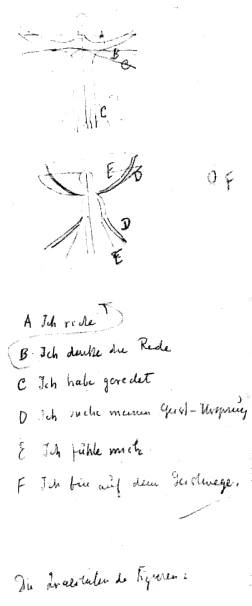 A
B
C
C
E D
F
D
E
A Ich rede
B. Ich denke die Rede
C Ich habe geredet
D Ich suche meinen Geist-Ursprung
E Ich fühle mich
F Ich bin auf dem Geistwege.
Die der Figuren: